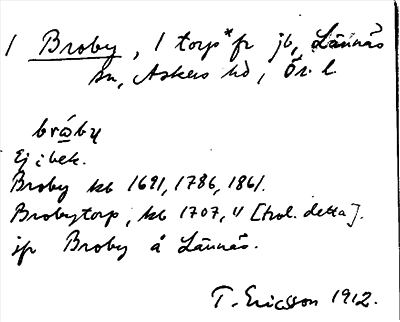 1 Broby, 1 torp* fr jb, Lännäs
sn, Askers hd, Ör. l.
bro̲by
Ej i bek.
Broby kb 1691, 1786, 1861.
Brobytorp, kb 1707, 11 [trol. detta].
jfr Broby å Lännäs.
T. Ericsson 1912.